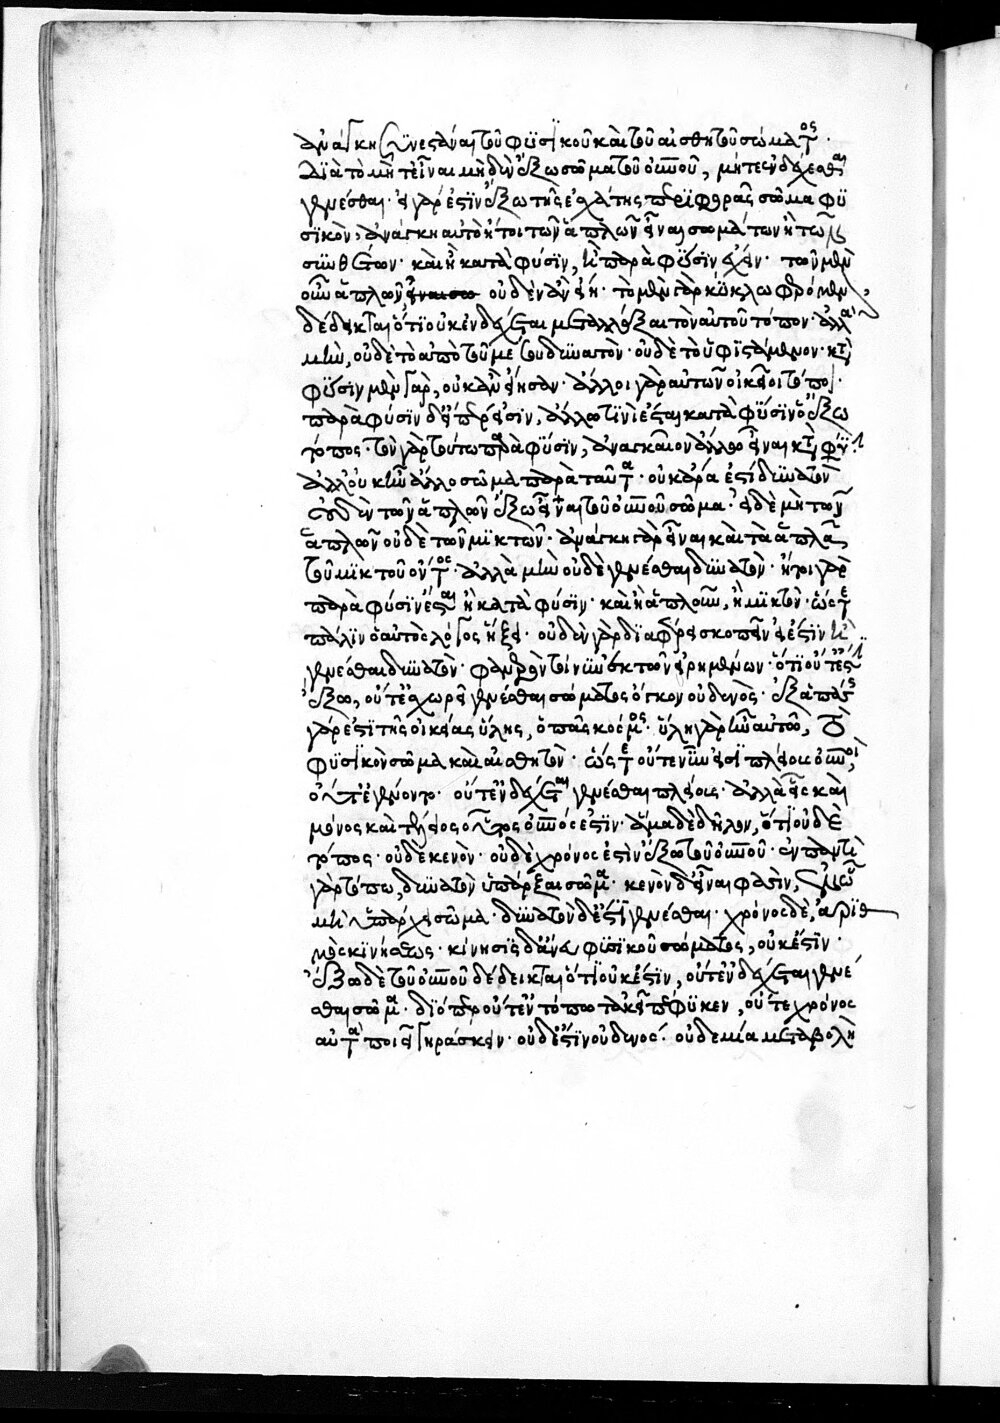 ἀνάγκη συνεστάναι τοῦ φυσικοῦ καὶ τοῦ αἰσθητοῦ σώματος·
διὰ τὸ μήτε εἶναι μηδὲν ἔξω σῶμα τοῦ οὐρανοῦ, μήτε ἐνδέχεσθαι
γενέσθαι· εἰ γάρ ἐστιν ἔξω τῆς ἐσχάτης περιφορᾶς σῶμα φυ
σικὸν, ἀνάγκη αὐτὸ ἤτοι τῶν ἁπλῶν εἶναι σωμάτων ἢ τῶν
συνθέτων· καὶ ἢ κατὰ φύσιν, ἢ παρὰ φύσιν ἔχειν· τῶν μὲν
οὖν ἁπλῶν οὐδὲν ἂν εἴη· τὸ μὲν γὰρ κύκλῳ φερόμενον
δέδεικται ὅτι οὐκ ἐνδέχεται μεταλλάξαι τὸν αὑτοῦ τόπον· ἀλλὰ
μὴν, οὐδὲ τὸ ἀπὸ τοῦ μέσου δυνατὸν· οὐδὲ τὸ ὑφιστάμενον· κατὰ
φύσιν μὲν γὰρ, οὐκ ἂν εἴησαν· ἄλλοι γὰρ αὐτῶν οἰκεῖοι τόποι·
παρὰ φύσιν δ' εἴπερ εἰσίν, ἄλλῳ τινὶ ἔσται κατὰ φύσιν ὁ ἔξω
τόπος· τὸν γὰρ τούτῳ παρὰ φύσιν, ἀναγκαῖον ἄλλῳ εἶναι κατὰ φύσιν·
ἀλλ' οὐκ ἦν ἄλλο σῶμα παρὰ ταῦτα· οὐκ ἄρα ἐστὶ δυνατὸν
οὐδὲν τῶν ἁπλῶν ἔξω εἶναι τοῦ οὐρανοῦ σῶμα· εἰ δὲ μὴ τῶν
ἁπλῶν οὐδὲ τῶν μικτῶν· ἀνάγκη γὰρ εἶναι καὶ τὰ ἁπλᾶ,
τοῦ μικτοῦ ὄντος· ἀλλὰ μὴν οὐδὲ γενέσθαι δυνατὸν· ἤτοι γὰρ
παρὰ φύσιν ἔσται ἢ κατὰ φύσιν· καὶ ἢ ἁπλοῦν, ἢ μικτὸν· ὥστε
πάλιν ὁ αὐτὸς λόγος ἥξει· οὐδὲν γὰρ διαφέρει σκοπεῖν εἰ ἔστιν ἢ εἰ
γενέσθαι δυνατὸν· φανερὸν τοίνυν ἐκ τῶν εἰρημένων· ὅτι οὔτε ἔστιν
ἔξω, οὔτε ἐγχωρεῖ γενέσθαι σώματος ὄγκον οὐδενὸς· ἐξ ἁπάσης
γάρ ἐστι τῆς οἰκείας ὕλης, ὁ πᾶς κόσμος· ὕλη γὰρ ἦν αὐτῷ, τὸ
φυσικὸν σῶμα καὶ αἰσθητὸν· ὥστε οὔτε νῦν εἰσὶ πλείους οὐρανοί,
οὔτε ἐγένοντο· οὔτε ἐνδέχεται γενέσθαι πλείους· ἀλλὰ εἷς καὶ
μόνος καὶ τέλειος οὗτος οὐρανός ἐστιν· ἅμα δὲ δῆλον, ὅτι οὐδὲ
τόπος· οὐδὲ κενὸν· οὐδὲ χρόνος ἐστὶν ἔξω τοῦ οὐρανοῦ· ἐν παντὶ
γὰρ τόπῳ, δυνατὸν ὑπάρξαι σῶμα· κενὸν δ' εἶναι φασὶν, ἐν ᾧ
μὴ ὑπάρχει σῶμα· δυνατὸν δέ ἐστι γενέσθαι· χρόνος δὲ, ἀριθ
μὸς κινήσεως· κίνησις δ' ἄνευ φυσικοῦ σώματος, οὐκ ἔστιν·
ἔξω δὲ τοῦ οὐρανοῦ δέδεικται ὅτι οὐκ ἔστιν, οὔτε ἐνδέχεται γενέ
σθαι σῶμα· διόπερ οὔτε ἐν τόπῳ τὰ κεῖ πέφυκεν, οὔτε χρόνος
αὐτὰ ποιεῖ γηράσκειν· οὐδέ ἐστιν οὐδενὸς· οὐδεμία μεταβολὴ